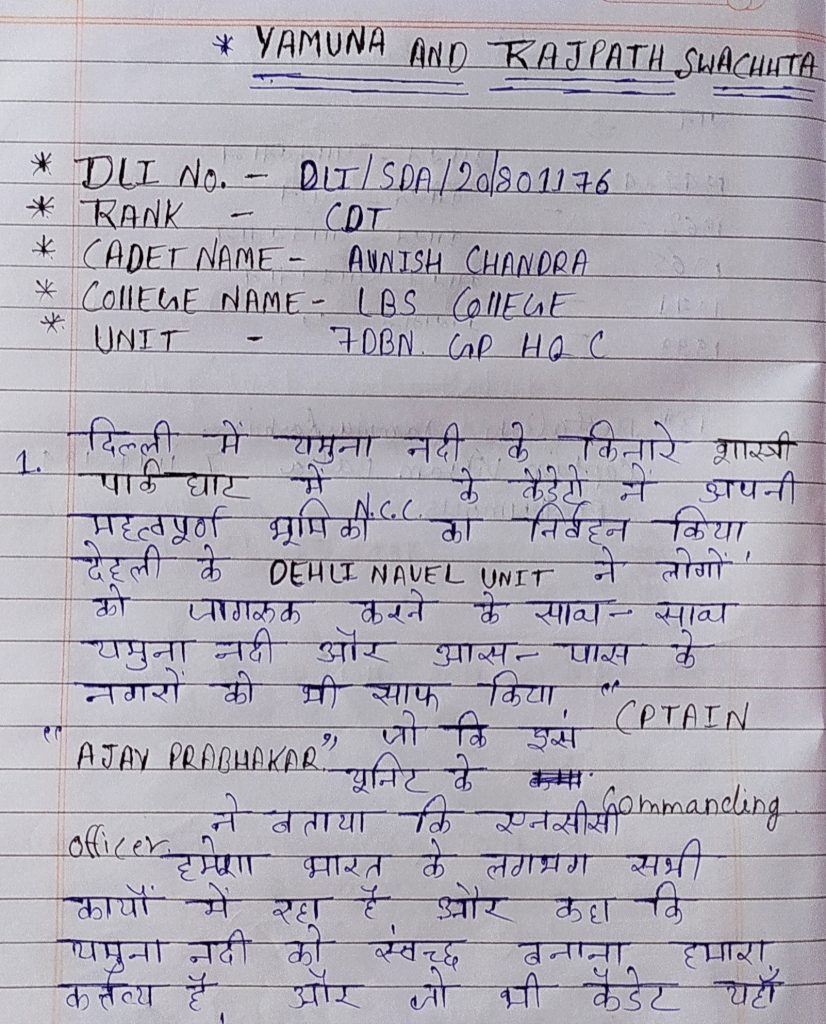 * YAMUNA AND RAJPATH SWACHHTA
* DLI No. - DLI/SDA/20/801176
* RANK - CDT
* CADET NAME - AVNISH CHANDRA
* COllEGE NAME - LBS COllEGE
* UNIT - 7DBN. GP HQ C
1. दिल्ली में यमुना नदी के किनारे शास्त्री
पार्क घाट में N.C.C. के कैडेटो ने अपनी
महत्वपूर्ण भूमिका का निर्वहन किया,
देहली के DEHLI NAVEL UNIT ने लोगों
को जागरुक करने के साथ-साथ
यमुना नदी और आस-पास के
नगरों को भी साफ किया, “CPTAIN
“AJAY PRABHAKAR” जो कि इस
यूनिट के Commanding
officer. ने बताया कि एनसीसी
हमेशा भारत के लगभग सभी
कार्यों में रहा है और कहा कि
यमुना नदी को स्वच्छ बनाना हमारा
कर्तव्य है, और जो भी कैडेट यहाँ